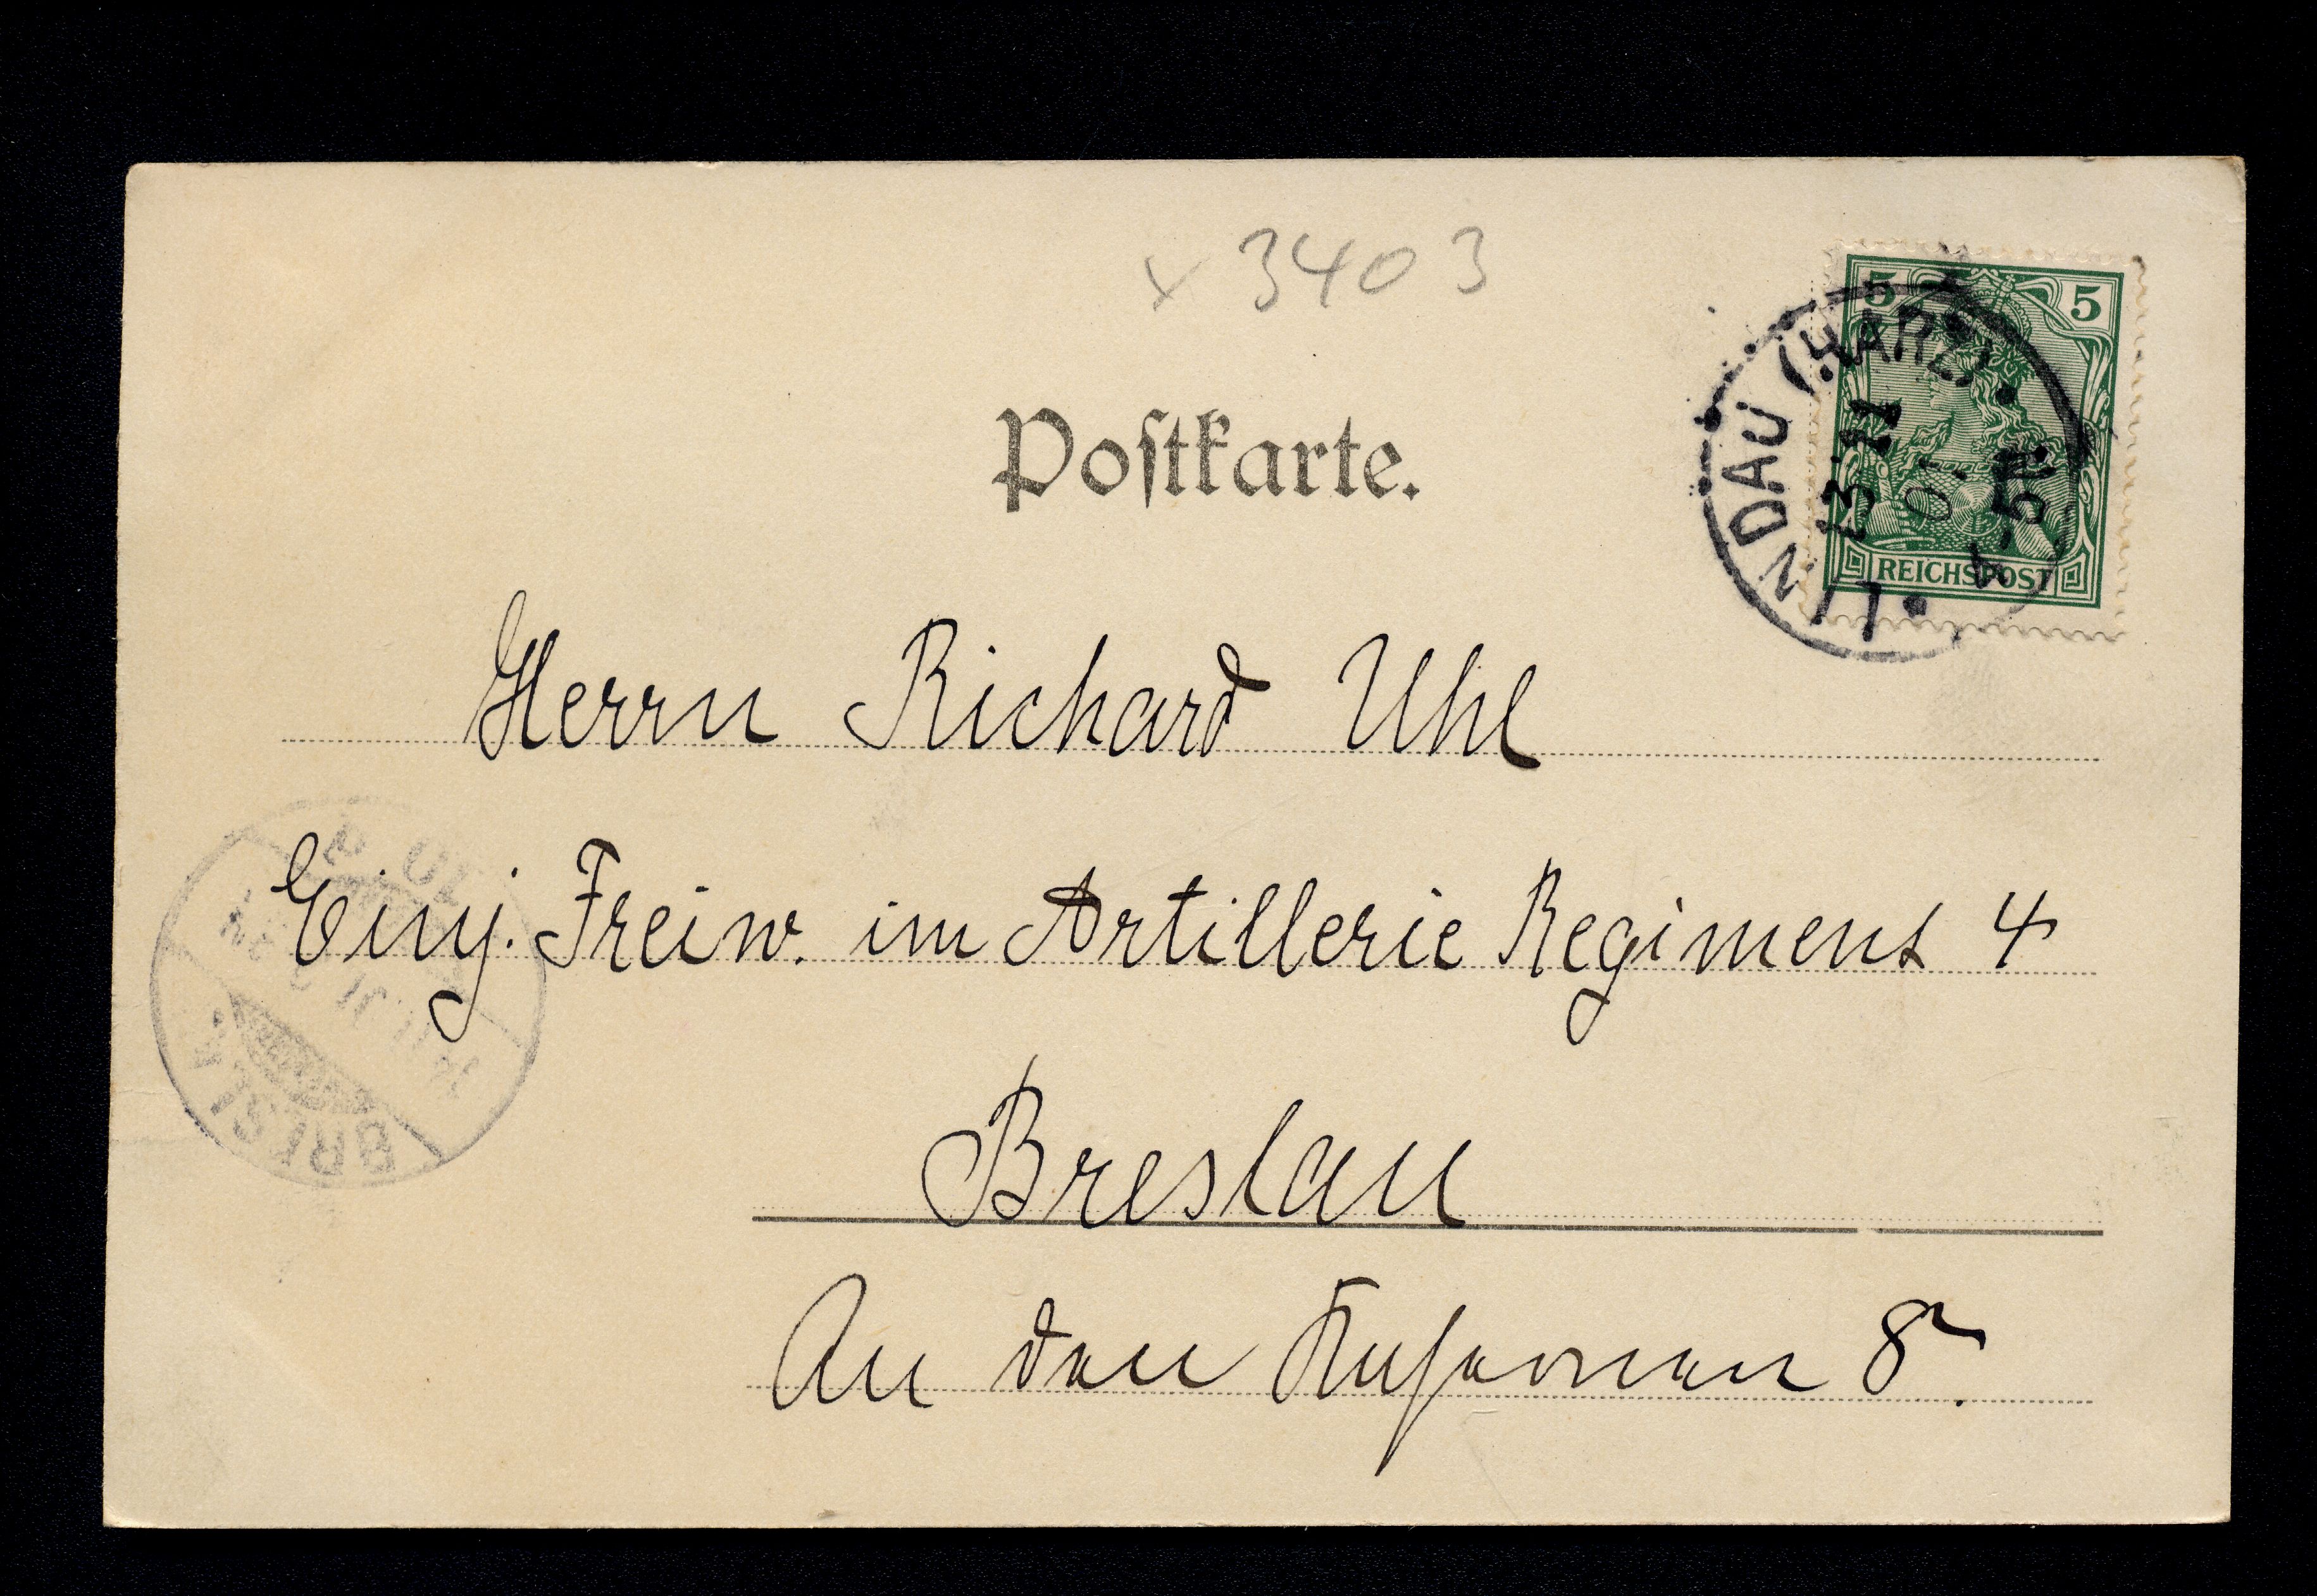 x 3403
5 5
REICHSPOST
LINDAU (HARZ)
13.11
01
4-5N.
Postkarte.
Herrn Richard Uhl
Einj. Freiw. im Artillerie Regiment 4
Breslau
An den Kasernen 8
BRESLA